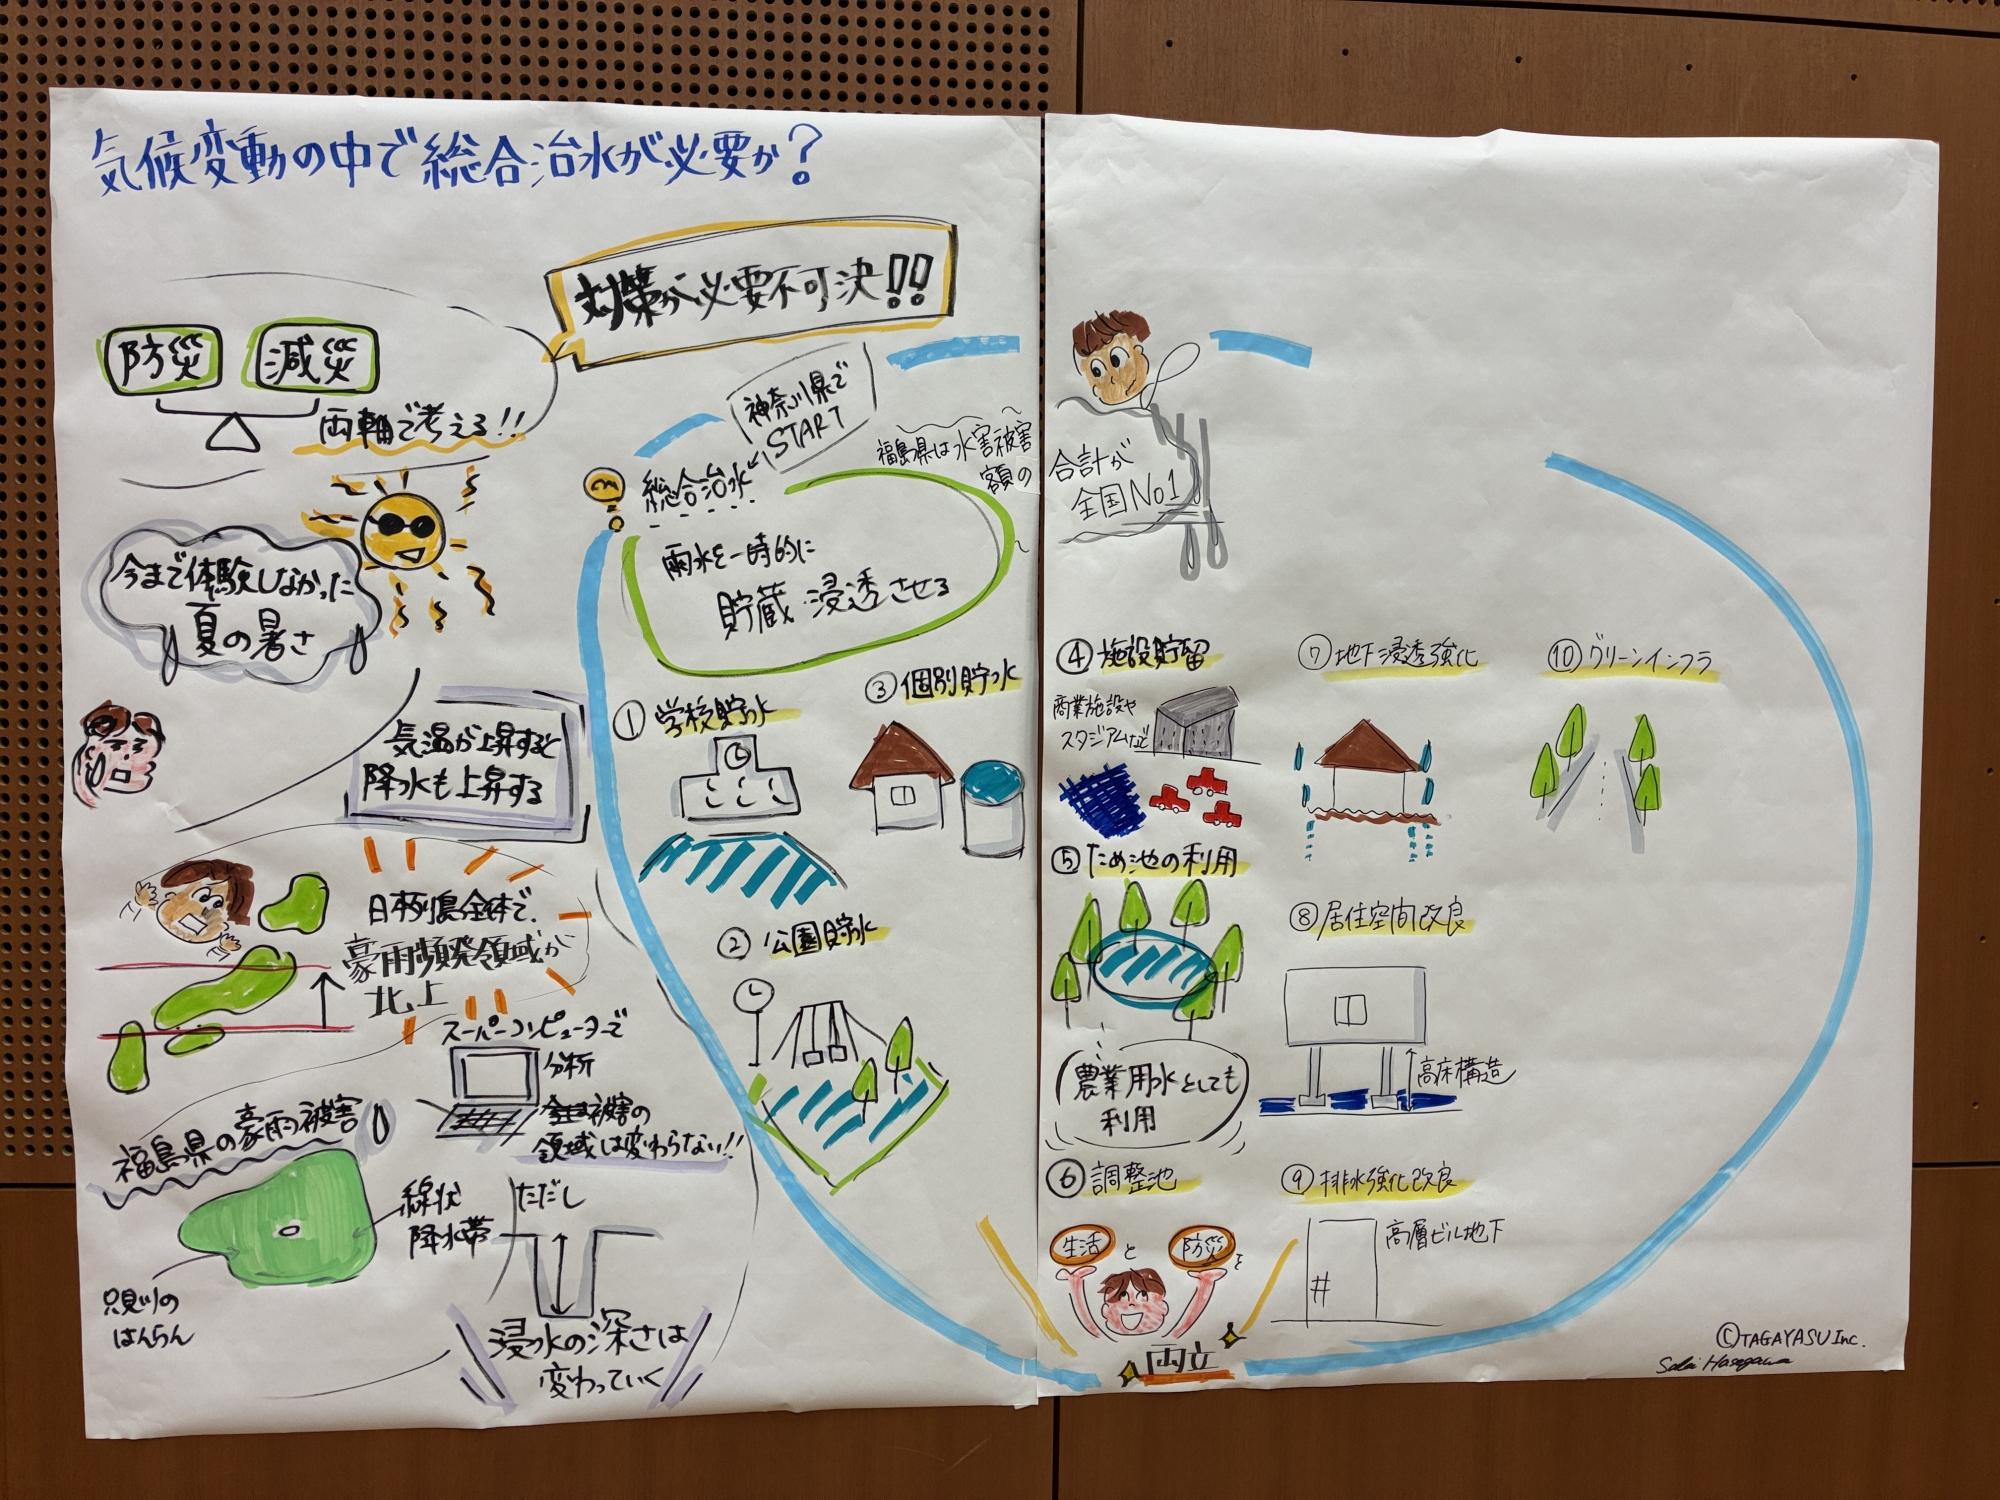 気候変動の中で総合治水が必要か?
対策が必要不可決!!
防災
減災
両軸で考える!!
今まで体験しなかった
夏の暑さ
気温が上昇すると
降水も上昇する
日本列島全体で、
豪雨頻発領域が
北上
スーパーコンピューターで
分析
被害の
領域は変わらない!!
福島県の豪雨被害
線状
降水帯
只見川の
はんらん
ただし
浸水の深さは
変わっていく
神奈川県で
START
総合治水
雨水を一時的に
貯蔵・浸透させる
福島県は水害被害
額の
合計が
全国No1
①学校貯水
②公園貯水
③個別貯水
④施設貯留
商業施設や
スタジアムなど
⑤ため池の利用
農業用水としても
利用
⑥調整池
生活と防災を
両立
⑦地下浸透強化
⑧居住空間改良
高床構造
⑨排水強化改良
高層ビル地下
⑩グリーンインフラ
©TAGAYASU Inc.